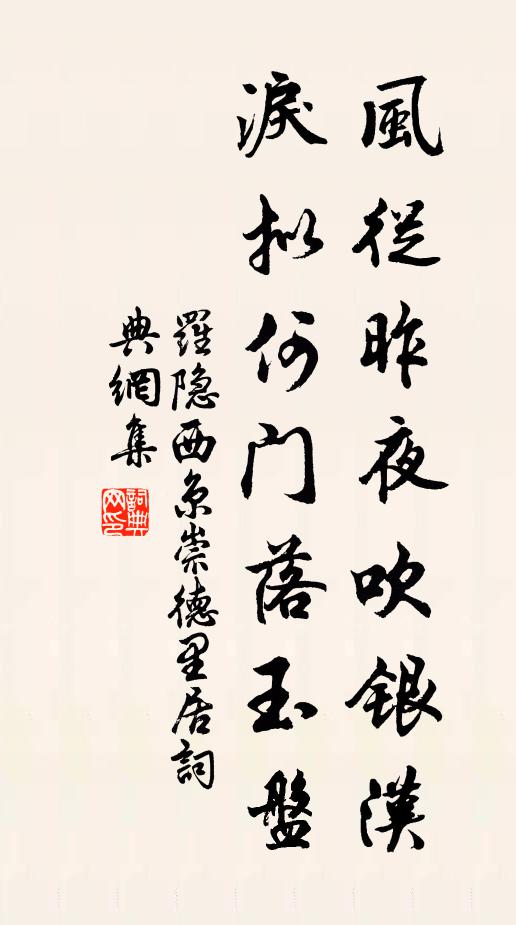 風從昨夜吹銀漢
淚拟何门落玉盤
羅隐西京崇德里居詞
典網集
詞典
网印